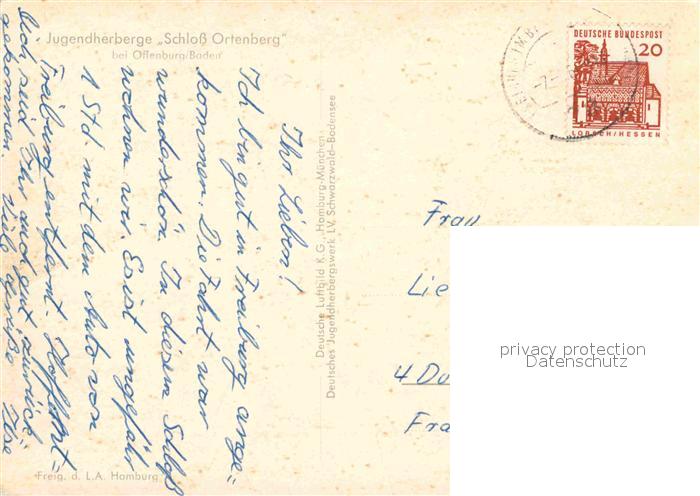 Jugendherberge „Schloß Ortenberg"
bei Offenburg/Baden
Ihr Lieben!
Ich bin gut in Freiburg ange=
kommen. Die Fahrt war
wunderschön. In diesem Schloß
wohnen wir. Es ist ungefähr
1 Std. mit dem Auto von
Freiburg entfernt. Hoffent=
lich seid Ihr auch gut zurück=
gekommen. Viele Grüße Ilse
Freig. d. L.A. Hamburg
Deutsche Luftbild K.G., Hamburg-München
Deutsches Jugendherbergswerk LV. Schwarzwald-Bodensee
DEUTSCHE BUNDESPOST
20
LORSCH/HESSEN
Frau
Lie
4 Dü
Fra
privacy protection
Datenschutz